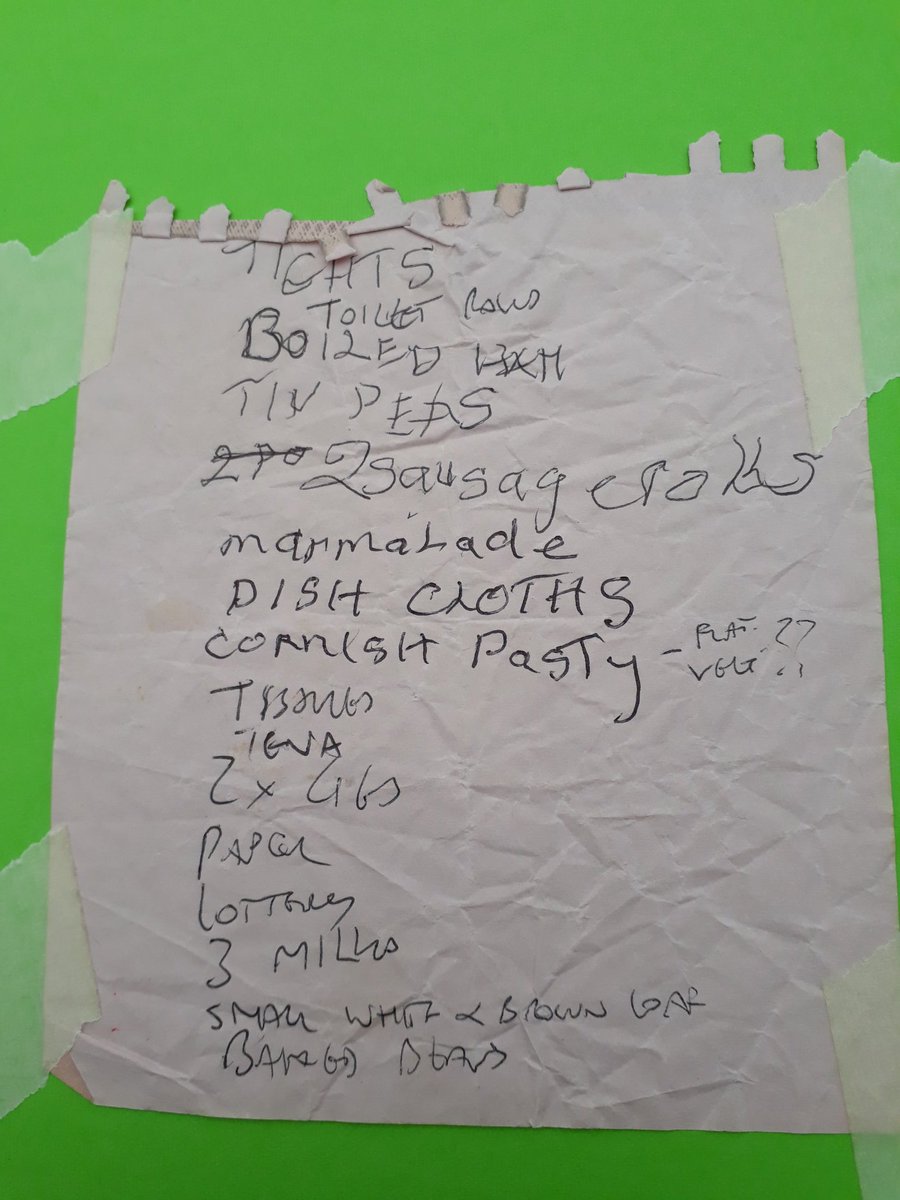 TIGHTS
TOILET ROLLS
BOILED HAM
TIN PEAS
2 Sausage rolls
marmalade
DISH CLOTHS
CORNISH PasTy - FLAT ??
VEG ??
TISSUES
TENA
2 x CIGS
PAPER
LOTTERY
3 MILKS
SMALL WHITE & BROWN LOAF
BAKED BEANS